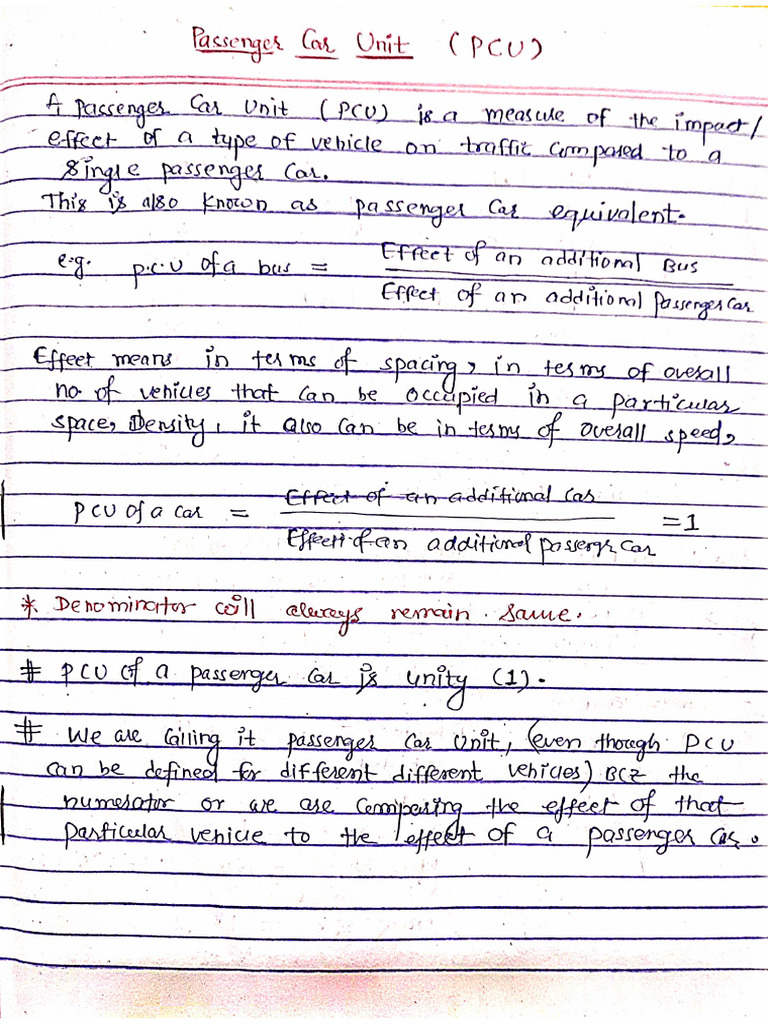 Passenger Car Unit (PCU)
A Passenger Car Unit (PCU) is a measure of the impact/
effect of a type of vehicle on traffic compared to a
single passenger car.
This is also known as passenger car equivalent.
e.g. p.c.u of a bus = Effect of an additional Bus
Effect of an additional passenger car
Effect means in terms of spacing, in terms of overall
no. of vehicles that can be occupied in a particular
space, Density, it also can be in terms of overall speed,
PCU of a car = Effect of an additional car = 1
Effect of an additional passengr car
* Denominator will always remain same.
# PCU of a passenger car is unity (1).
# We are calling it passenger car unit, (even though PCU
can be defined for different different vehicles) BCZ the
numerator or we are comparing the effect of that
particular vehicle to the effect of a passenger car.